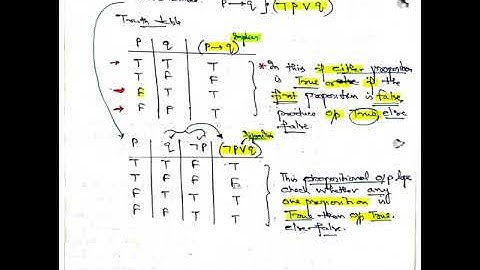 P → q } (¬P ∨ q)
Truth table
P q (P → q)
T T T
T F F
F T T
F F T
* In this if either proposition
is True or if the
first proposition is false
produce o/p True else
false.
P q ¬P (¬P ∨ q)
T T F T
T F F F
F T T T
F F T T
This propositional o/p
check whether any
one proposition is
True then o/p True.
else false.